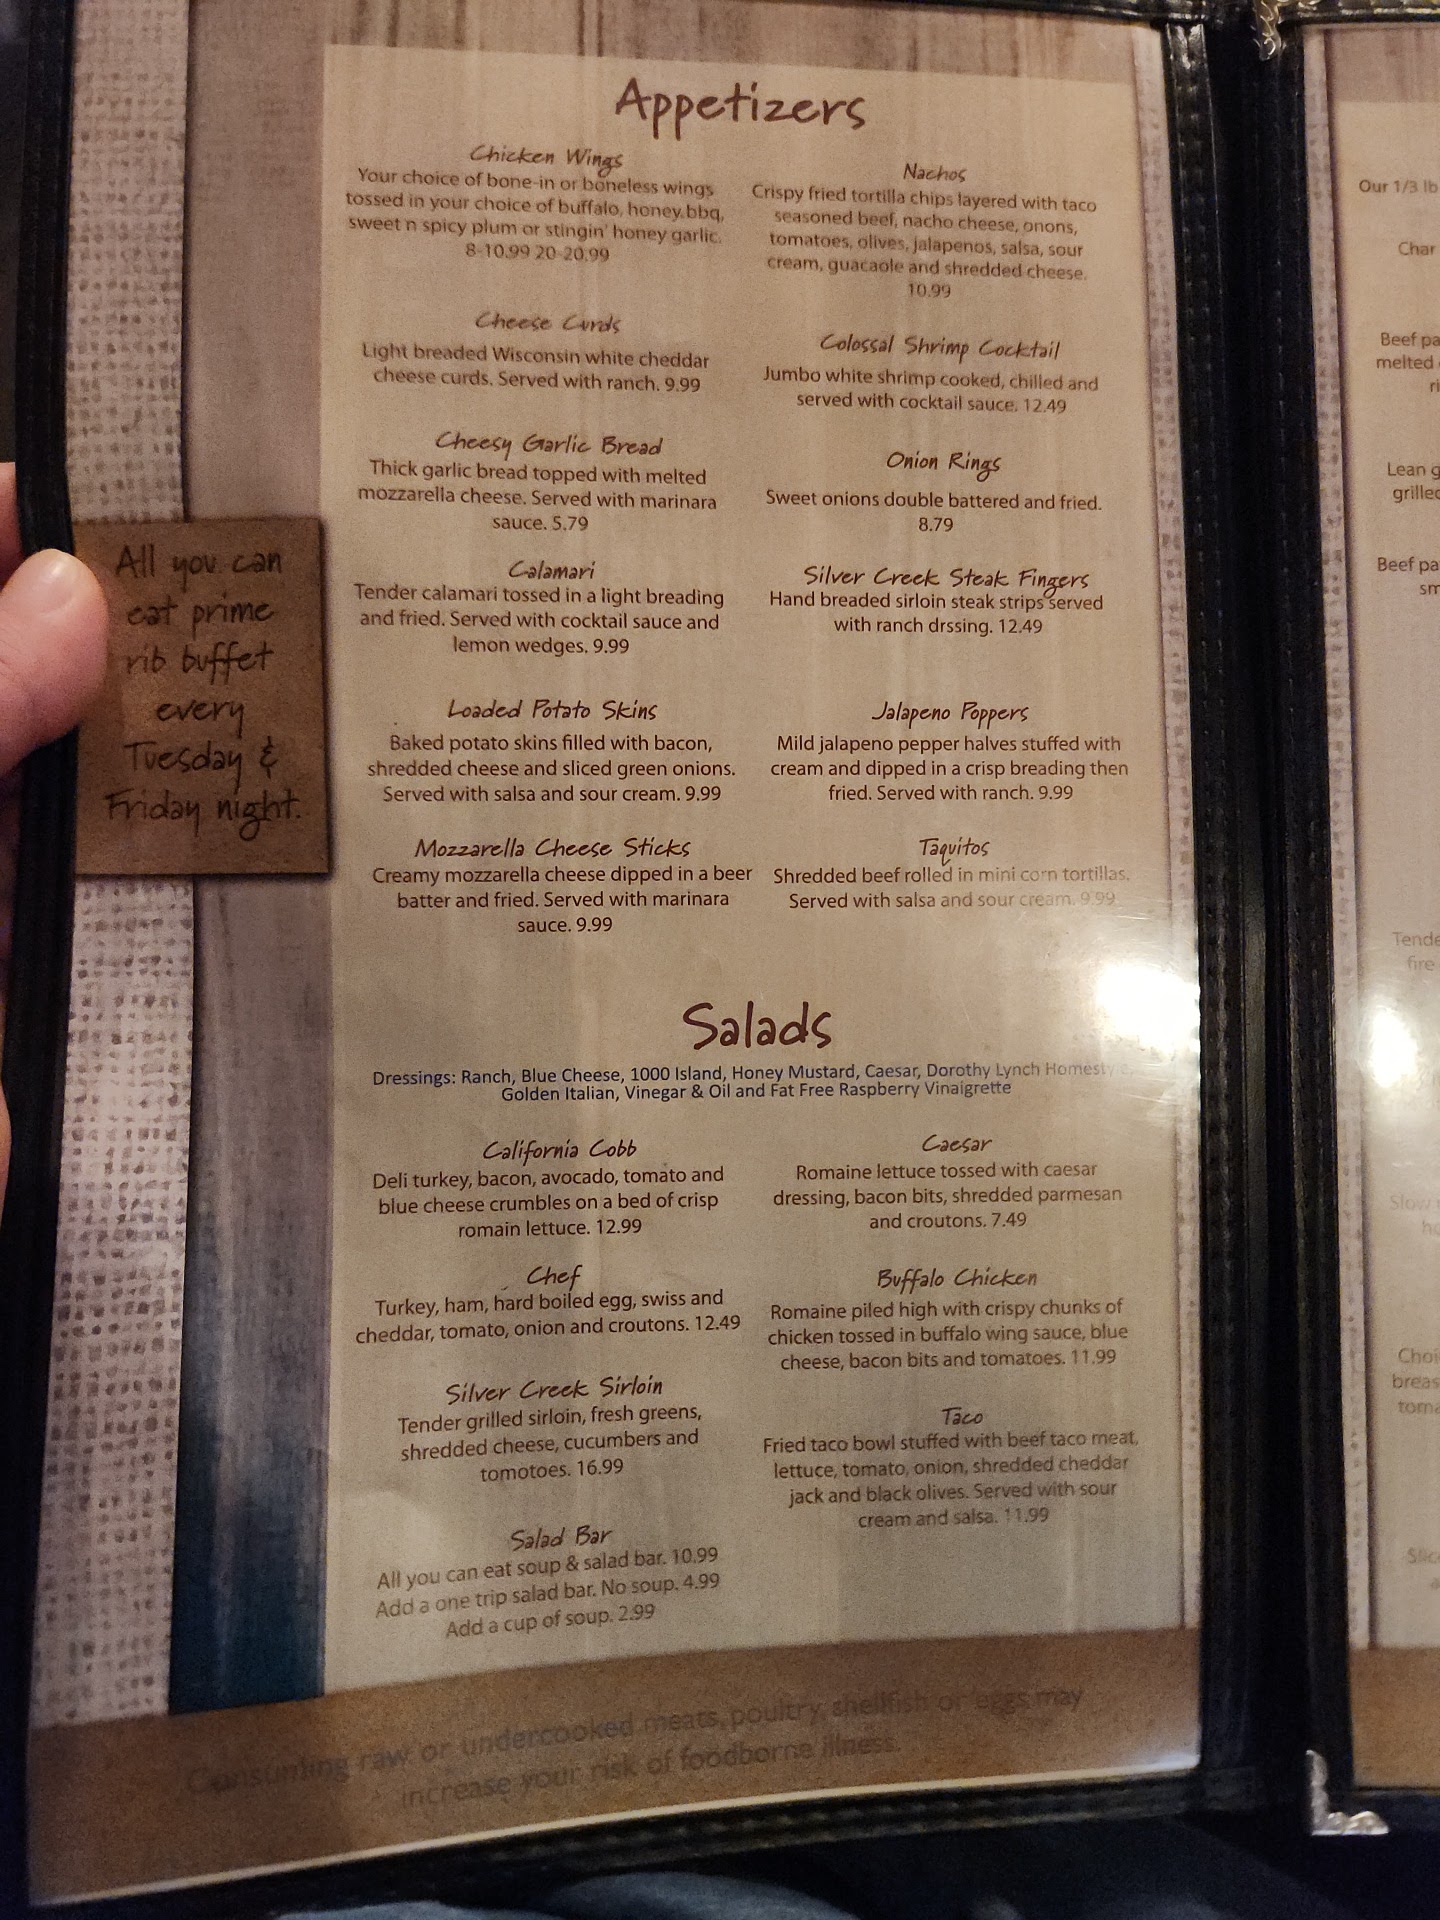 Appetizers
Chicken Wings
Your choice of bone-in or boneless wings
tossed in your choice of buffalo, honey bbq,
sweet n spicy plum or stingin' honey garlic.
8-10.99 20-20.99
Cheese Curds
Light breaded Wisconsin white cheddar
cheese curds. Served with ranch. 9.99
Cheesy Garlic Bread
Thick garlic bread topped with melted
mozzarella cheese. Served with marinara
sauce. 5.79
Calamari
Tender calamari tossed in a light breading
and fried. Served with cocktail sauce and
lemon wedges. 9.99
Loaded Potato Skins
Baked potato skins filled with bacon,
shredded cheese and sliced green onions.
Served with salsa and sour cream. 9.99
Mozzarella Cheese Sticks
Creamy mozzarella cheese dipped in a beer
batter and fried. Served with marinara
sauce. 9.99
Nachos
Crispy fried tortilla chips layered with taco
seasoned beef, nacho cheese, onons,
tomatoes, olives, jalapenos, salsa, sour
cream, guacaole and shredded cheese.
10.99
Colossal Shrimp Cocktail
Jumbo white shrimp cooked, chilled and
served with cocktail sauce. 12.49
Onion Rings
Sweet onions double battered and fried.
8.79
Silver Creek Steak Fingers
Hand breaded sirloin steak strips served
with ranch drssing. 12.49
Jalapeno Poppers
Mild jalapeno pepper halves stuffed with
cream and dipped in a crisp breading then
fried. Served with ranch. 9.99
Taquitos
Shredded beef rolled in mini corn tortillas.
Served with salsa and sour cream. 9.99
All you can
eat prime
rib buffet
every
Tuesday &
Friday night.
Salads
Dressings: Ranch, Blue Cheese, 1000 Island, Honey Mustard, Caesar, Dorothy Lynch
Golden Italian, Vinegar & Oil and Fat Free Raspberry Vinaigrette
California Cobb
Deli turkey, bacon, avocado, tomato and
blue cheese crumbles on a bed of crisp
romain lettuce. 12.99
Chef
Turkey, ham, hard boiled egg, swiss and
cheddar, tomato, onion and croutons. 12.49
Silver Creek Sirloin
Tender grilled sirloin, fresh greens,
shredded cheese, cucumbers and
tomotoes. 16.99
Salad Bar
All you can eat soup & salad bar. 10.99
Add a one trip salad bar. No soup. 4.99
Add a cup of soup. 2.99
Caesar
Romaine lettuce tossed with caesar
dressing, bacon bits, shredded parmesan
and croutons. 7.49
Buffalo Chicken
Romaine piled high with crispy chunks of
chicken tossed in buffalo wing sauce, blue
cheese, bacon bits and tomatoes. 11.99
Taco
Fried taco bowl stuffed with beef taco meat,
lettuce, tomato, onion, shredded cheddar
jack and black olives. Served with sour
cream and salsa. 11.99
Consuming raw or undercooked meats, poultry, shellfish or eggs may
increase your risk of foodborne illness.
Our 1/3 lb
Char
Beef
melted
Lean
grilled
Beef
fire
Slow